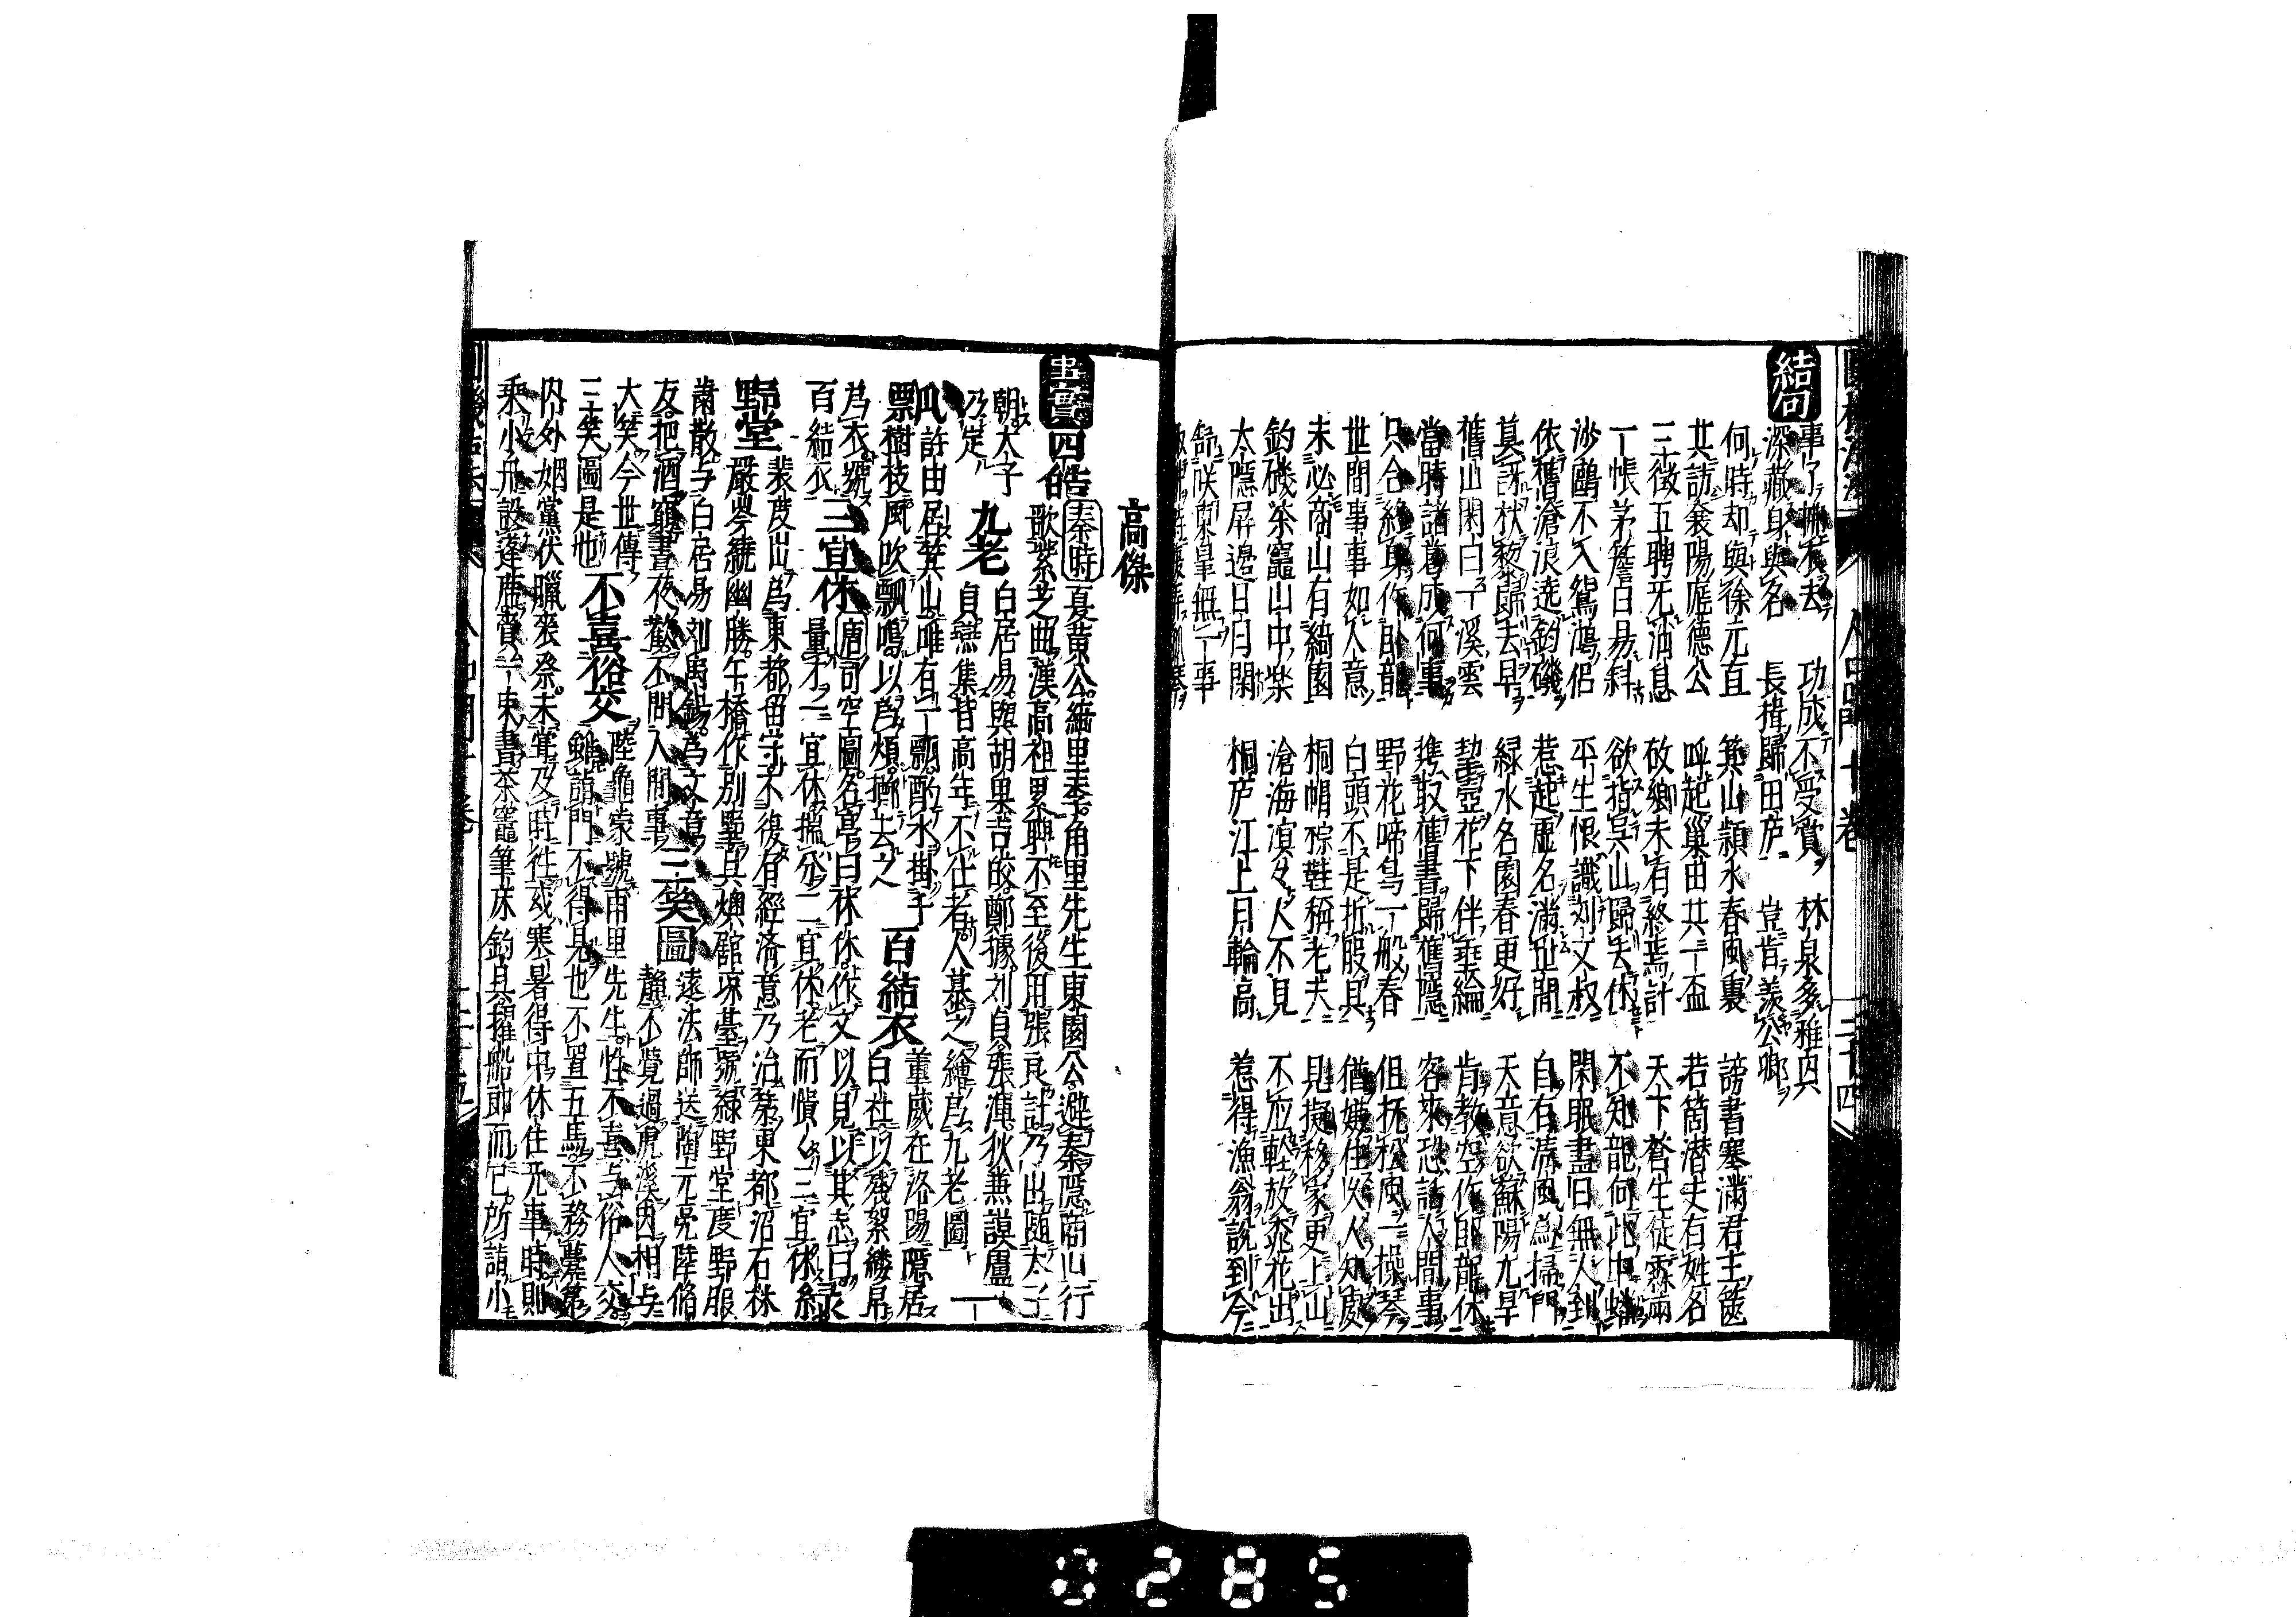 結句
事了拂衣去 功成不受賞 林泉多雅內共
深藏身與名 長揖歸田庐 豈肯羨公卿
何時却與徐元直 箕山潁水春風裏 謗書塞滿君王篋
共訪襄陽庞德公 呼起巢由共一盃 若箇潜夫有姓名
三徵五聘无油息 故鄉未有終焉計 天下蒼生徒霖雨
一帳茅簷白昜斜 欲指吳山歸去休 不知龍向此中蟠
沙鷗不入鴛鴻侶 平生恨識刘文叔 閑眠盡日無人到
依舊滄浪遶釣磯 惹起虚名滿世間 自有清風為掃門
莫訝杖藜歸去早 緑水名園春更好 天意欲蘇陽九旱
舊山閑曰一溪雲 挈壺花下伴垂綸 肯教空作卧龍休
當時諸葛成何事 携取舊書歸舊隱 客來恐話人間事
只合終身作卧龍 野花啼鳥一般春 但抚松風一操琴
世間事事如人意 白頭不是折股具 猶嫌住久人知處
未必商山有綺園 桐帽棕鞋稱老夫 見擬移家更上山
釣磯茶竈山中樂 滄海溟々人不見 不应輕放桃花出
太隱屏邊日月閑 桐庐江上日輪高 惹得漁翁說到今
高傑
事實 四皓 秦時 夏黄公綺里季角里先生東園公避秦隱商山行
歌紫芝曲漢高祖累聘不至後用張良計乃出随太子
朝太子
乃定 九老 白居易與胡果吉皎鄭據刘貞張渾狄兼謨盧
貞燕集皆高年不仕者人慕之繪爲九老圖 一
瓢 許由居箕山唯有一瓢酌水掛于
樹枝風吹飘鳴以爲煩擲去之 百結衣 董威在洛陽隱居
白社以殘絮縷帛
爲衣號
百結衣 三宜休 唐司空圖名亭曰休休作文以見以其志曰
量才一宜休揣分二宜休老而憒々三宜休 緑
野堂 裴度出爲東都留守不復有經済意乃治苐東都沼石林
嚴岑繚幽勝午橋作別墅具燠舘凉臺號緑野堂度野服
肅散与白居易刘禹錫爲文章
友把酒窮晝夜歡不問人間事 三笑圖 遠法師送陶元亮陸脩
靜不覺過虎溪因相与
大笑今世傳
三笑圖是也 不喜俗交 陸龜蒙號甫里先生性不喜与俗人交
雖詣門不得見也不置五馬不務慶弔
内外姻黨伏臘來祭未嘗及時往或寒暑得中休住无事時則
乘小舟設蓬席賫一束書茶竈筆床釣具擢船郎而已所詣小